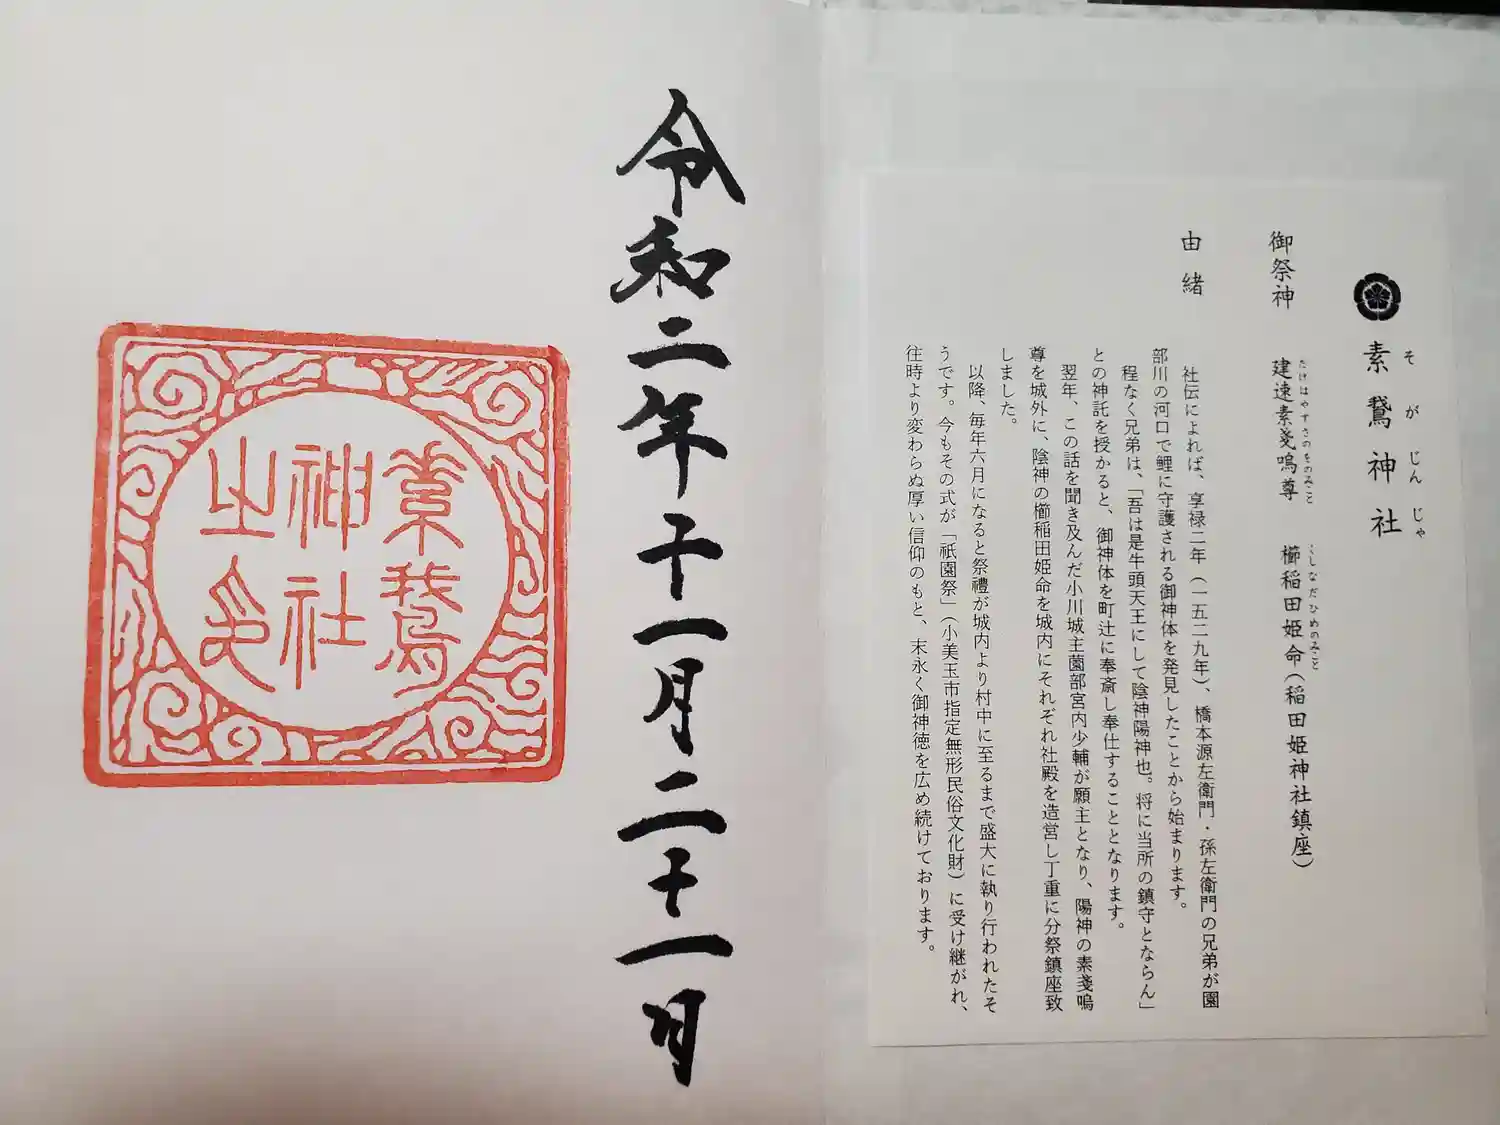 素鵞神社
そがじんじゃ
御祭神
建速素戔嗚尊
たけはやすさのをのみこと
櫛稲田姫命(稲田姫神社鎮座)
くしなだひめのみこと
由緒
社伝によれば、享禄二年(一五二九年)、橋本源左衛門・孫左衛門の兄弟が園
部川の河口で鯉に守護される御神体を発見したことから始まります。
程なく兄弟は、「吾は是牛頭天王にして陰神陽神也。将に当所の鎮守とならん」
との神託を授かると、御神体を町辻に奉斎し奉仕することとなります。
翌年、この話を聞き及んだ小川城主薗部宮内少輔が願主となり、陽神の素戔嗚
尊を城外に、陰神の櫛稲田姫命を城内にそれぞれ社殿を造営し丁重に分祭鎮座致
しました。
以降、毎年六月になると祭禮が城内より村中に至るまで盛大に執り行われたそ
うです。今もその式が「祇園祭」(小美玉市指定無形民俗文化財)に受け継がれ、
往時より変わらぬ厚い信仰のもと、末永く御神徳を広め続けております。
令和二年十一月二十一日
素鵞
神社
之印